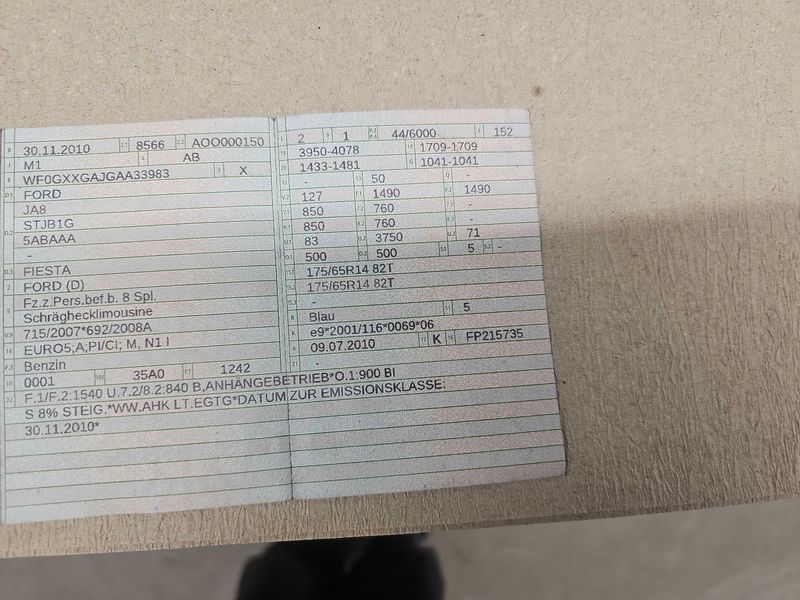 B 30.11.2010 2.1 8566 2.2 AOO000150
J M1 4 AB
E WF0GXXGAJGAA33983 3 X
D.1 FORD
JA8
D.2 STJB1G
5ABAAA
-
D.3 FIESTA
2 FORD (D)
5 Fz.z.Pers.bef.b. 8 Spl.
Schräghecklimousine
V.9 715/2007*692/2008A
14 EURO5;A;PI/CI; M, N1 I
P.3 Benzin
10 0001 14.1 35A0 P.1 1242
22 F.1/F.2:1540 U.7.2/8.2:840 B.ANHÄNGEBETRIEB*O.1:900 BI
S 8% STEIG.*WW.AHK LT.EGTG*DATUM ZUR EMISSIONSKLASSE:
30.11.2010*
L 2 9 1 P.2 P.4 44/6000 T 152
18 3950-4078 19 1709-1709
20 1433-1481 G 1041-1041
12 - 13 50 Q -
V.7 127 F.1 1490 F.2 1490
7.1 850 7.2 760 7.3 -
8.1 850 8.2 760 8.3 -
U.1 83 U.2 3750 U.3 71
O.1 500 O.2 500 S.1 5 S.2 -
15.1 175/65R14 82T
15.2 175/65R14 82T
15.3 -
R Blau 11 5
K e9*2001/116*0069*06
6 09.07.2010 17 K 16 FP215735
21 -